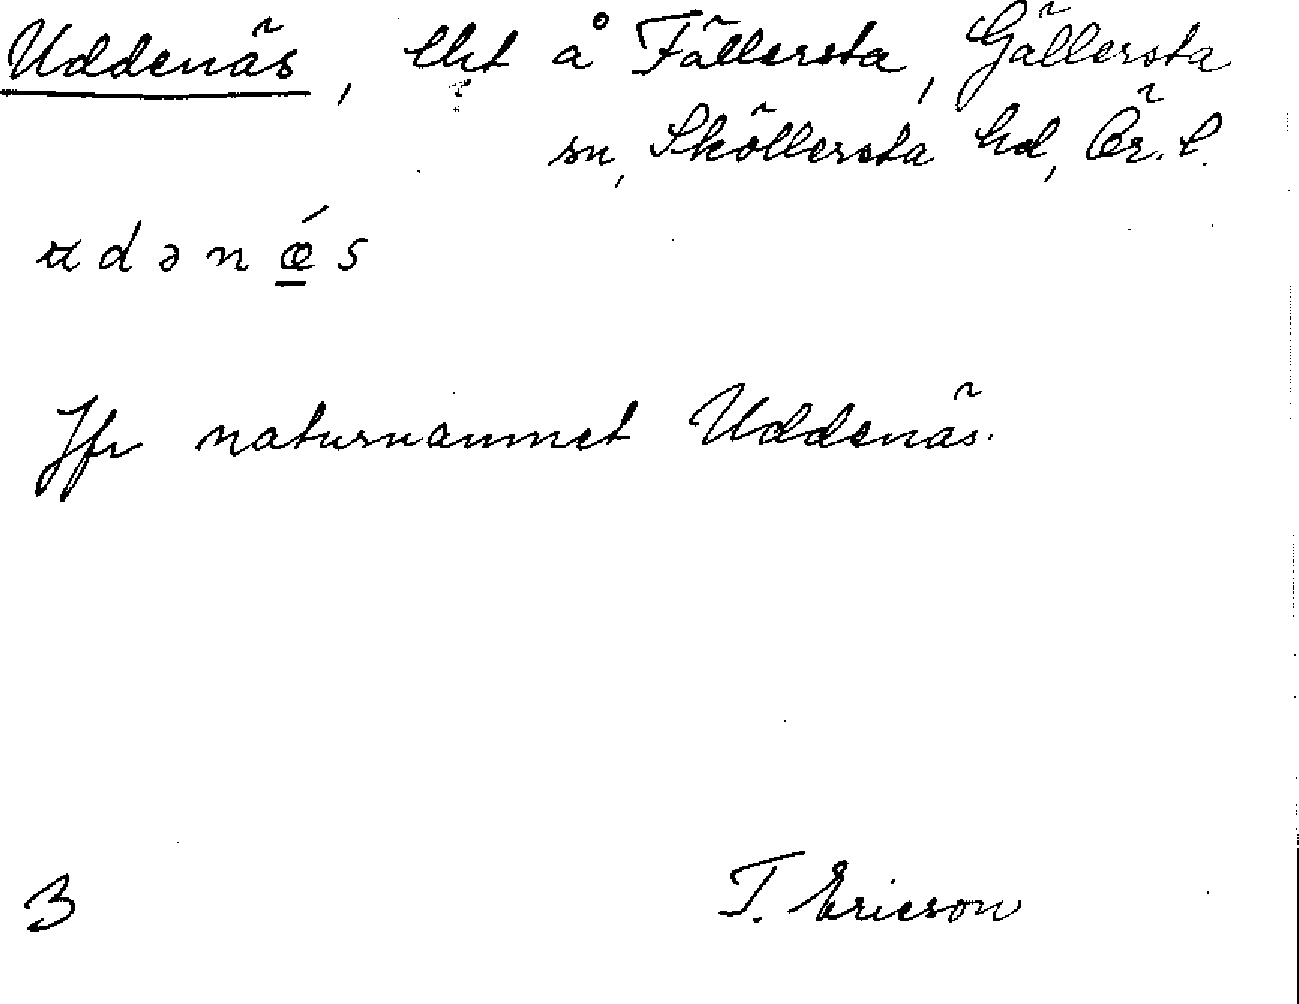 Uddenäs, lht å Fällersta, Gällersta
sn, Sköllersta hd, Ör. l.
udənǽs
Jfr naturnamnet Uddenäs.
3 T. Ericson